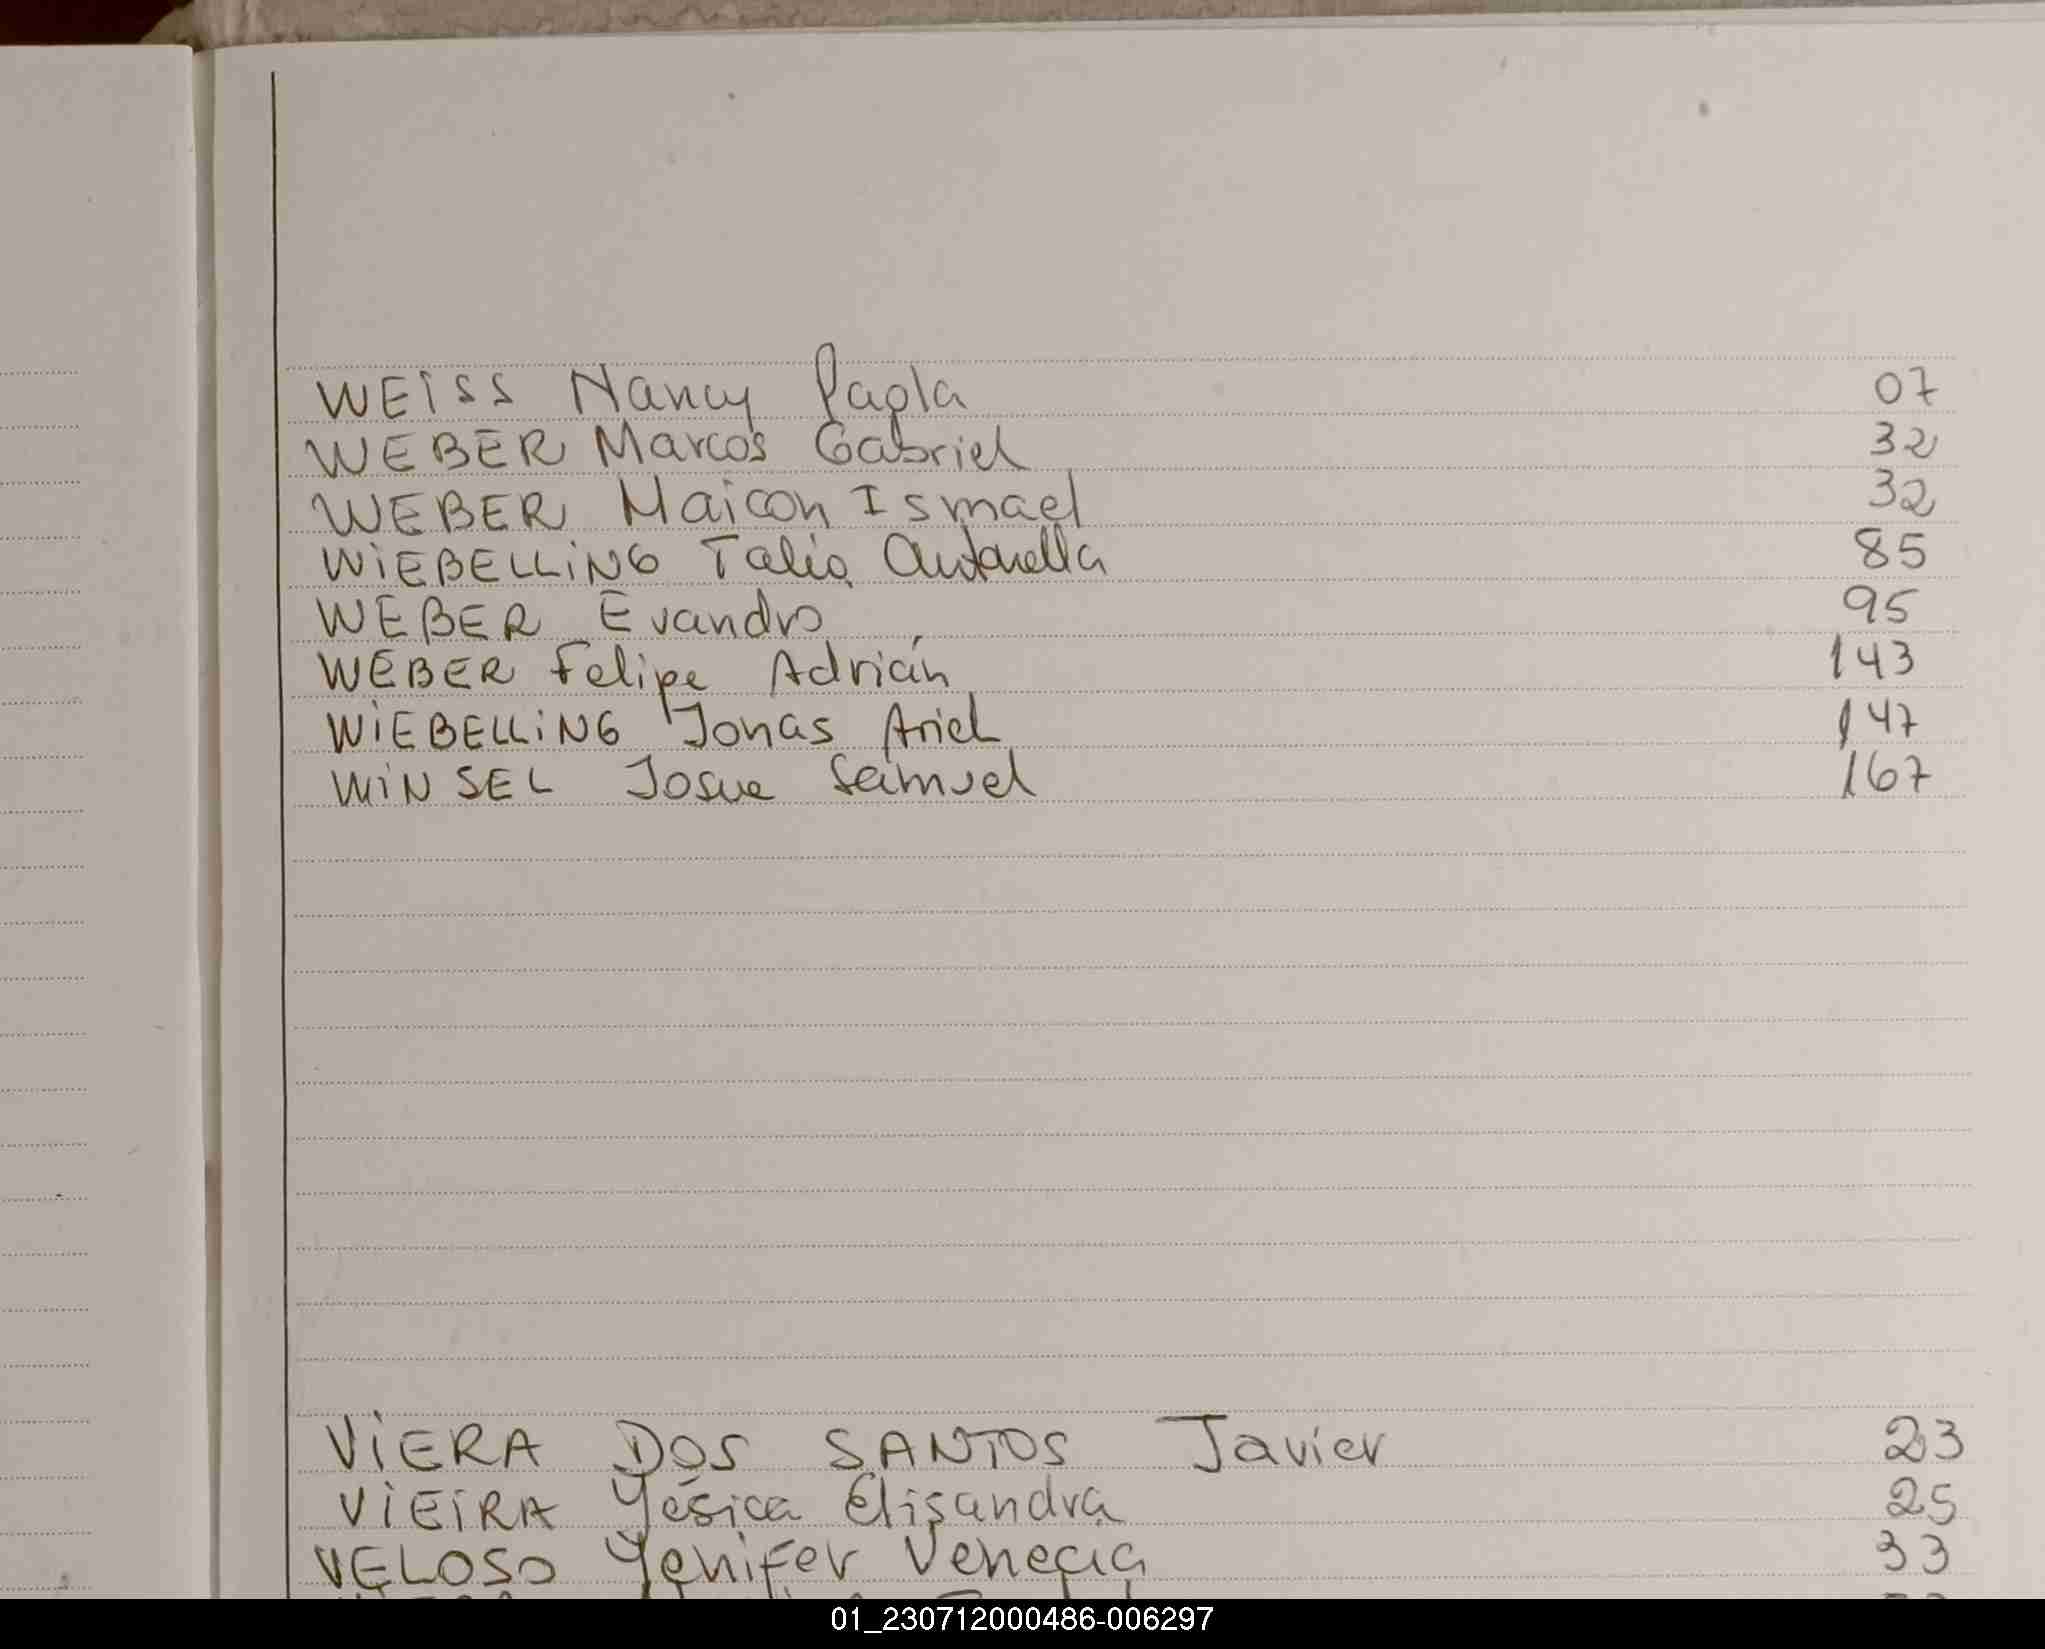 WEiSS Nancy Paola 07
WEBER Marcos Gabriel 32
WEBER Maicon Ismael 32
WiEBELLiNG Talia Antonella 85
WEBER Evandro 95
WEBER Felipe Adrián 143
WiEBELLiNG Jonas Ariel 147
WiNSEL Josue Samuel 167
ViERA DOS SANTOS Javier 23
ViEiRA Yésica Elisandra 25
VELOSO Yenifer Venecia 33
01_230712000486-006297